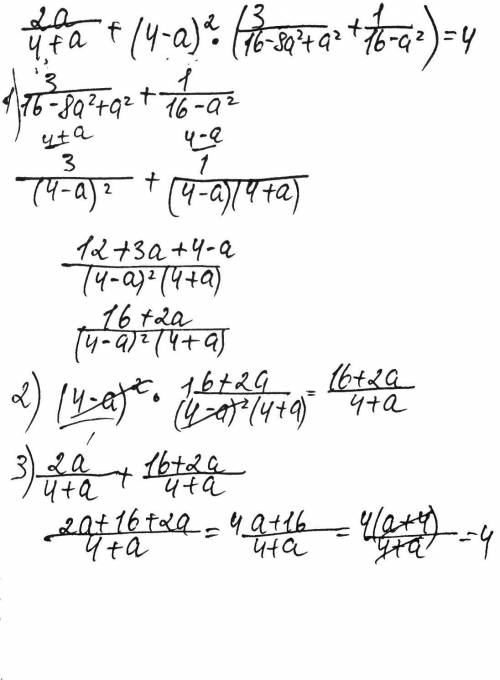 2a/(4+a) + (4-a)²·(3/(16-8a²+a²) + 1/(16-a²)) = 4
1) 3/(16-8a²+a²) + 1/(16-a²)
4+a 4-a
3/(4-a)² + 1/((4-a)(4+a))
(12+3a+4-a)/((4-a)²(4+a))
(16+2a)/((4-a)²(4+a))
2) (4-a)² · (16+2a)/((4-a)²(4+a)) = (16+2a)/(4+a)
3) 2a/(4+a) + (16+2a)/(4+a)
(2a+16+2a)/(4+a) = (4a+16)/(4+a) = 4(a+4)/(4+a) = 4